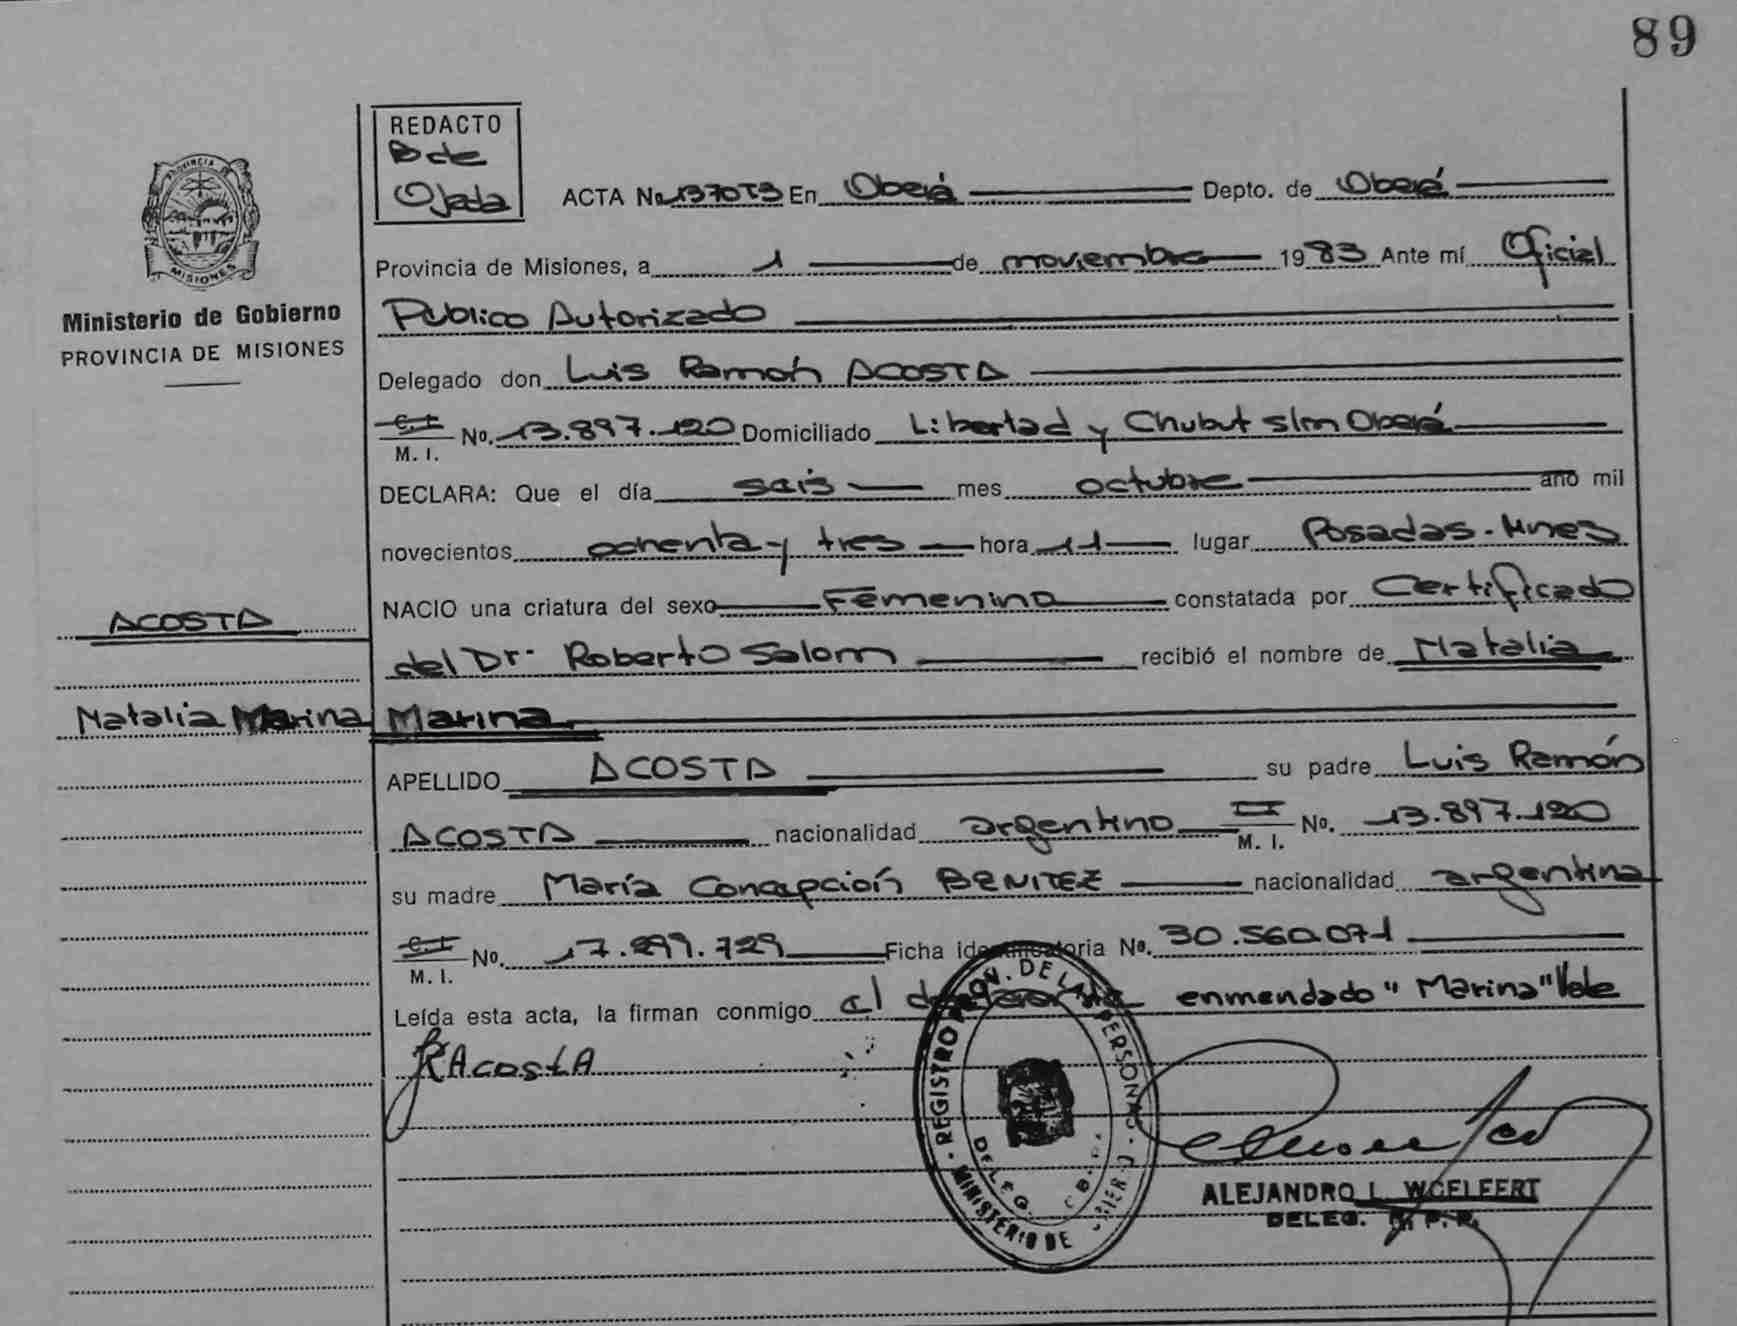 89
REDACTO
B de
Ojeda
ACTA No 1370T3 En Oberá Depto. de Oberá
PROVINCIA
MISIONES
Provincia de Misiones, a 1 de noviembre 1983 Ante mí Oficial
Ministerio de Gobierno
PROVINCIA DE MISIONES
Público Autorizado
Delegado don Luis Ramón ACOSTA
C.I. M. I. No. 13.897.120 Domiciliado Libertad y Chubut s/n Oberá
DECLARA: Que el día seis mes octubre año mil
novecientos ochenta y tres hora 11 lugar Posadas-Mnes
NACIO una criatura del sexo Femenino constatada por Certificado
ACOSTA
del Dr. Roberto Salom recibió el nombre de Natalia
Natalia Marina Marina
APELLIDO ACOSTA su padre Luis Ramón
ACOSTA nacionalidad argentino M. I. No. 13.897.120
su madre María Concepción BENITEZ nacionalidad argentina
C.I. M. I. No. 17.899.729 Ficha identificatoria No. 30.560.071
Leída esta acta, la firman conmigo el declarante enmendado "Marina" Vale
RAcostA
REGISTRO PROV. DE LAS PERSONAS
MINISTERIO DE
DELEG.
ALEJANDRO L. WOELFERT
DELEG. R. P. P.